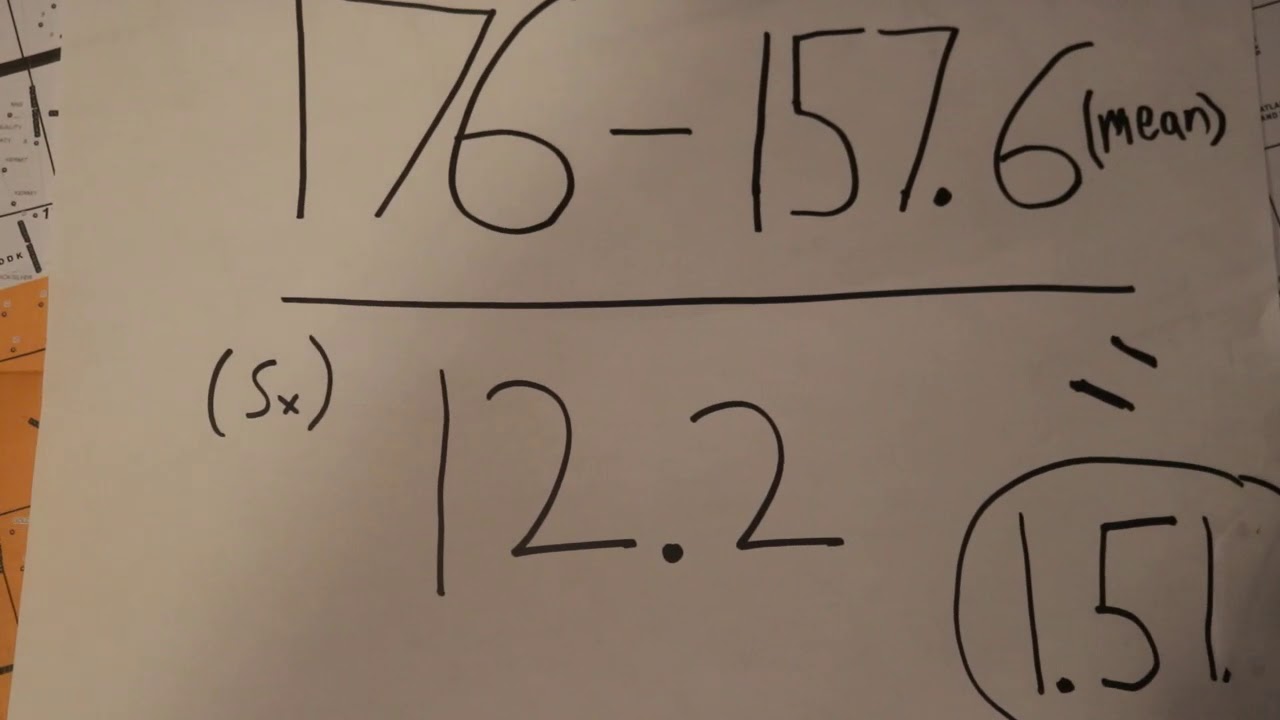 176 - 157.6 (mean)
(Sx) 12.2
=
1.51.